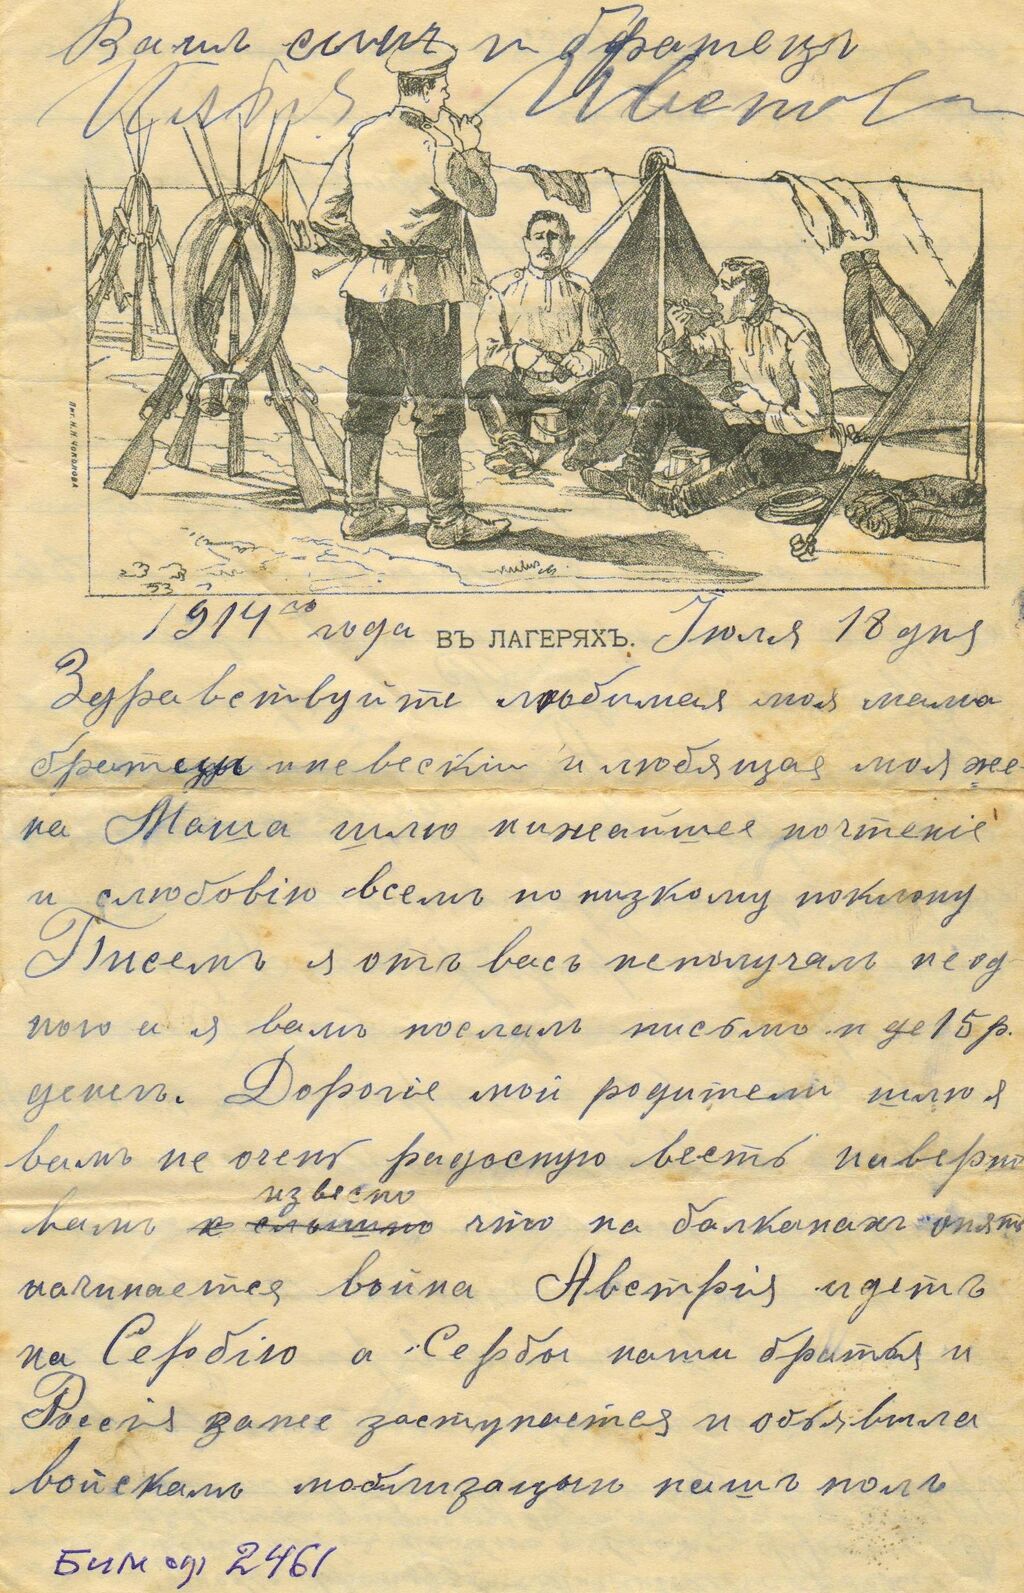 Вашъ сынъ и братецъ
Лит. Н. Н. Чоколова
1914го года ВЪ ЛАГЕРЯХЪ. Іюля 18 дня
Здравствуйте любимая моя мама
братецы и невескіи и любящая моя же-
на Маша шлю нижайшее почтеніе
и слюбовію всемъ по низкому поклону
Писемъ я отъ васъ неполучалъ не од
ного а я вамъ послалъ письмо и де 15 р.
денегъ. Дорогіе мои родители шлю я
вамъ не очень радосную весть наверно
извесно
вамъ что на балканахъ опять
начинается война Австрія идетъ
на Сербію а Сербы наши братья и
Россія занее заступается и объявила
войскамъ моблизацыю нашъ полъ
БИМ ф 2461